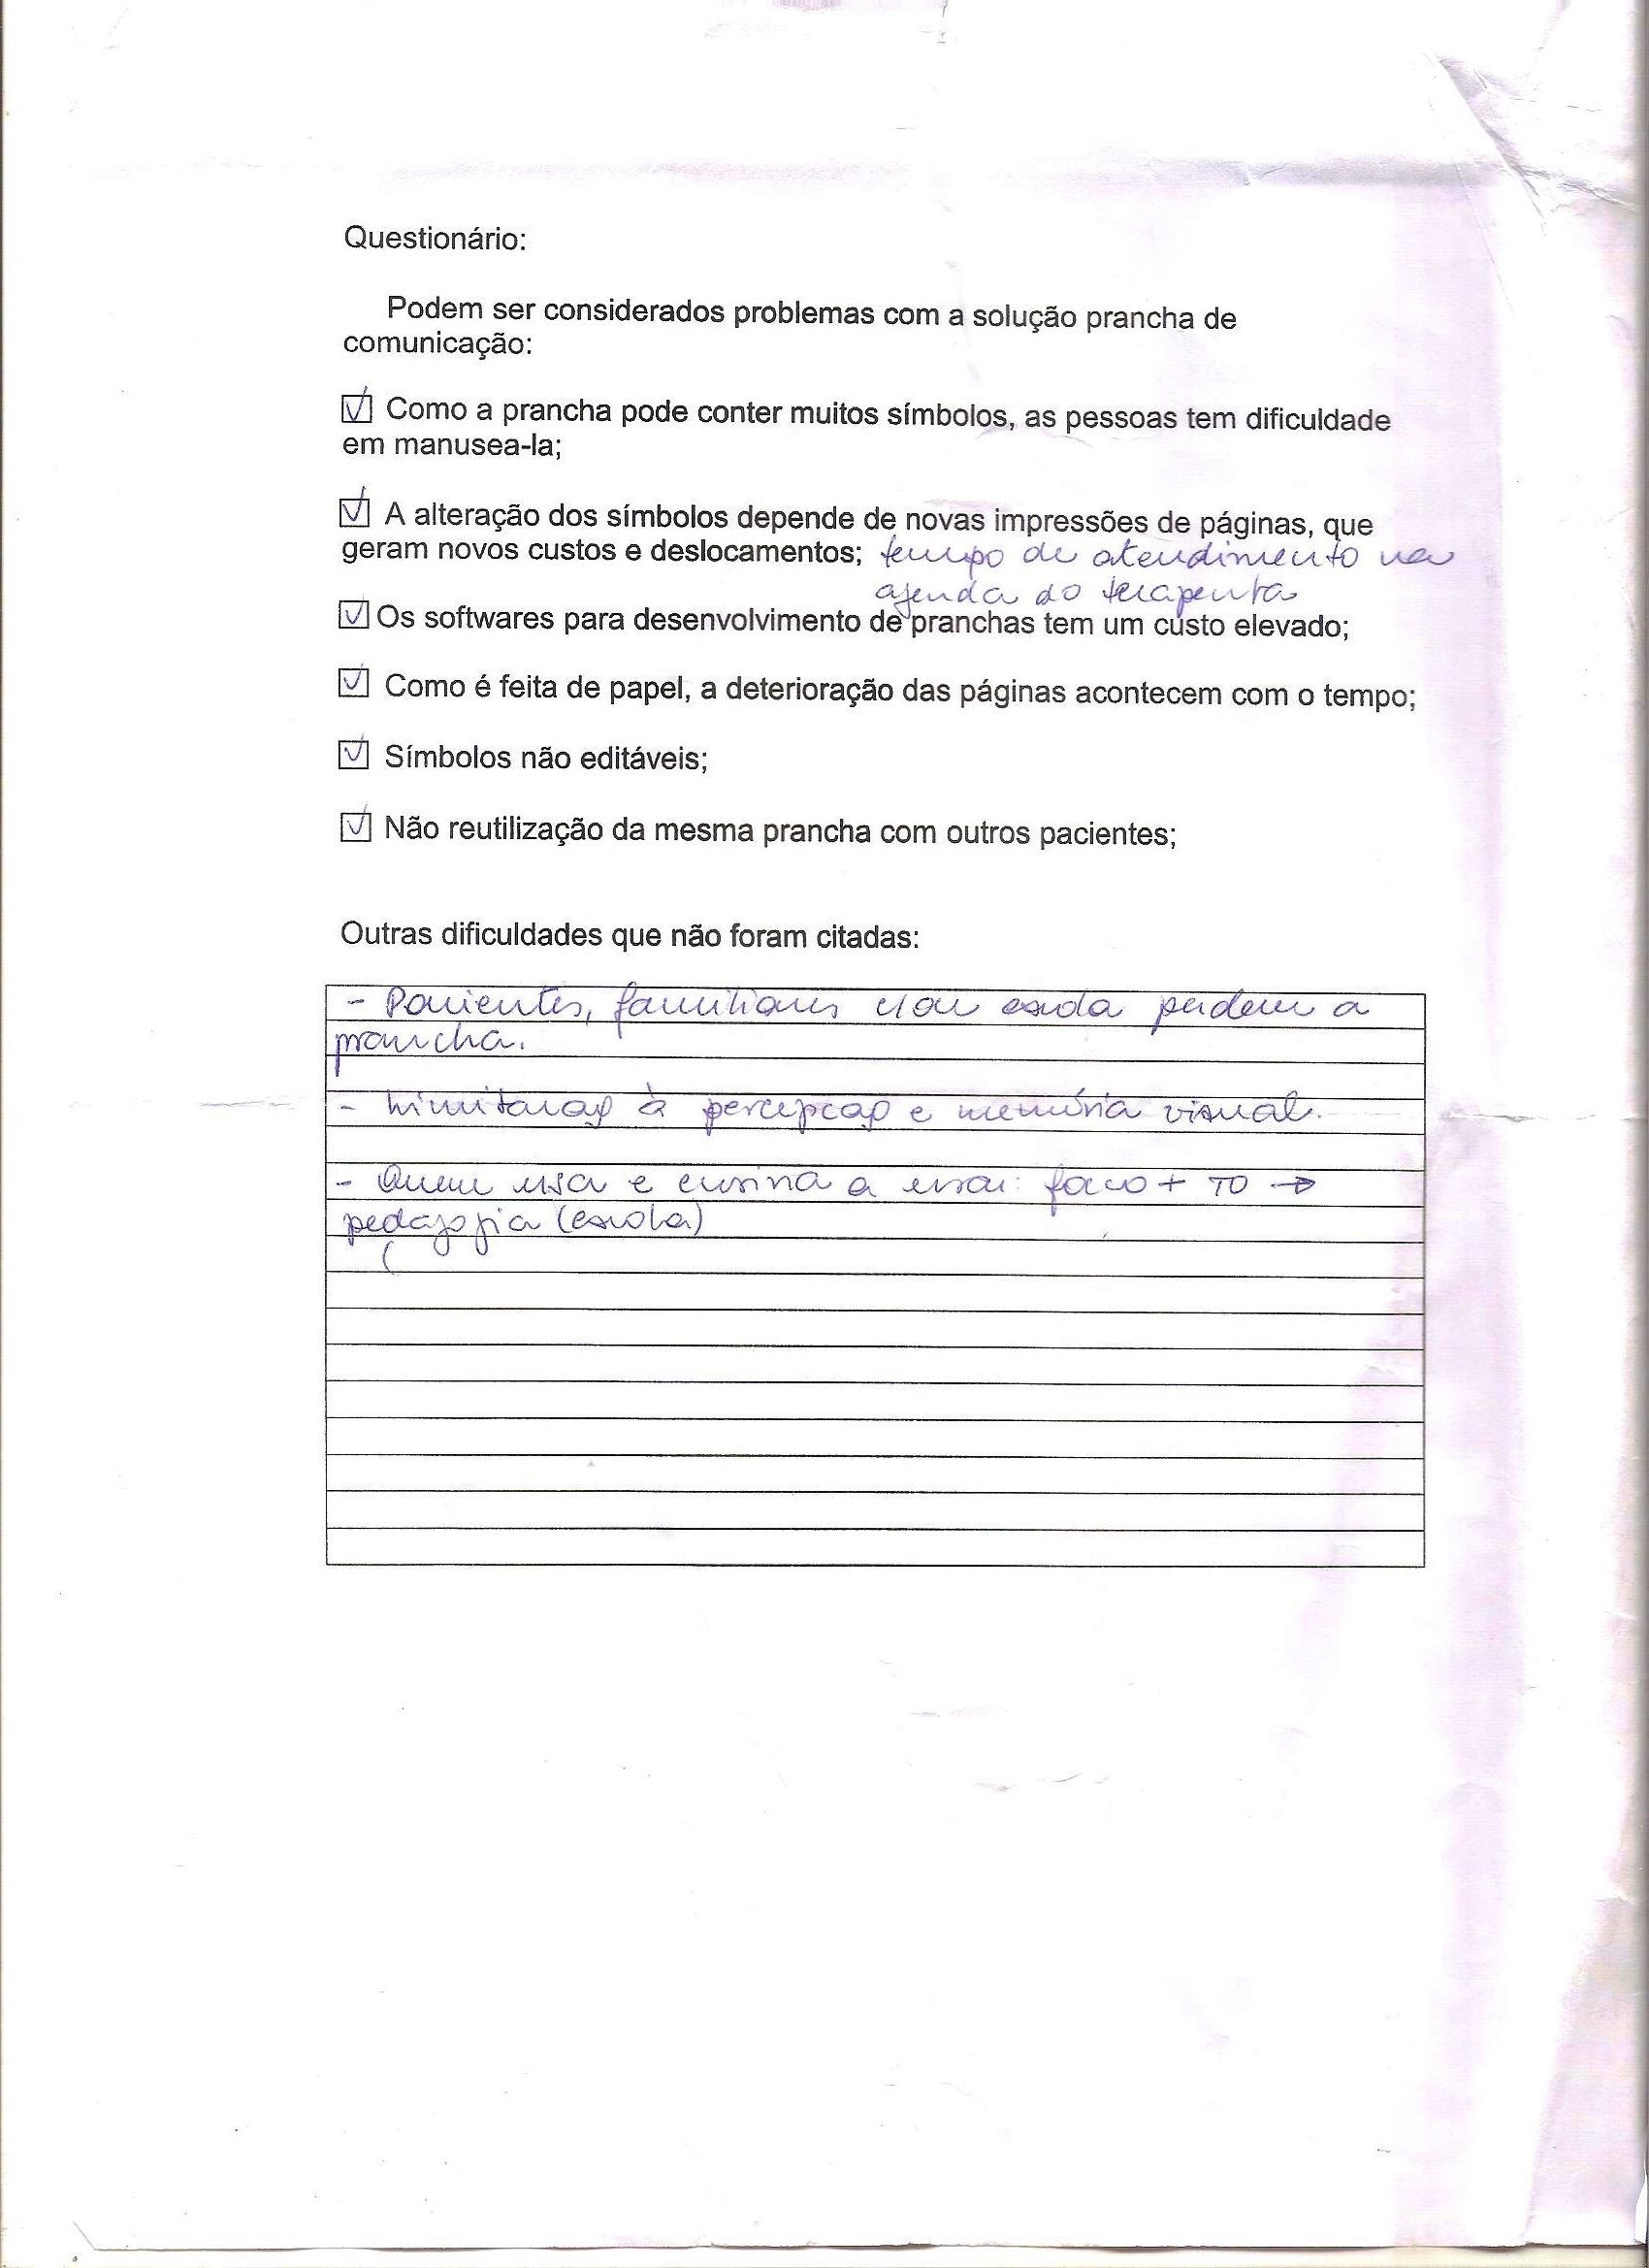 Questionário:
Podem ser considerados problemas com a solução prancha de
comunicação:
☑ Como a prancha pode conter muitos símbolos, as pessoas tem dificuldade
em manusea-la;
☑ A alteração dos símbolos depende de novas impressões de páginas, que
geram novos custos e deslocamentos; tempo de atendimento na
agenda do terapeuta
☑ Os softwares para desenvolvimento de pranchas tem um custo elevado;
☑ Como é feita de papel, a deterioração das páginas acontecem com o tempo;
☑ Símbolos não editáveis;
☑ Não reutilização da mesma prancha com outros pacientes;
Outras dificuldades que não foram citadas:
- Pacientes, familiares e/ou escola perdem a
prancha.
- Limitação à percepção e memória visual.
- Quem usa e ensina a usar: fono + TO →
pedagogia (escola)